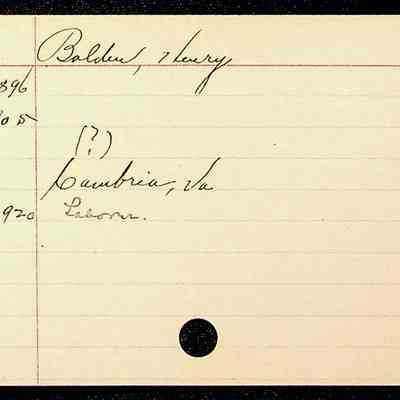 Bolden, Henry
896
05
(?)
Cambria, Va
920 Laborer.